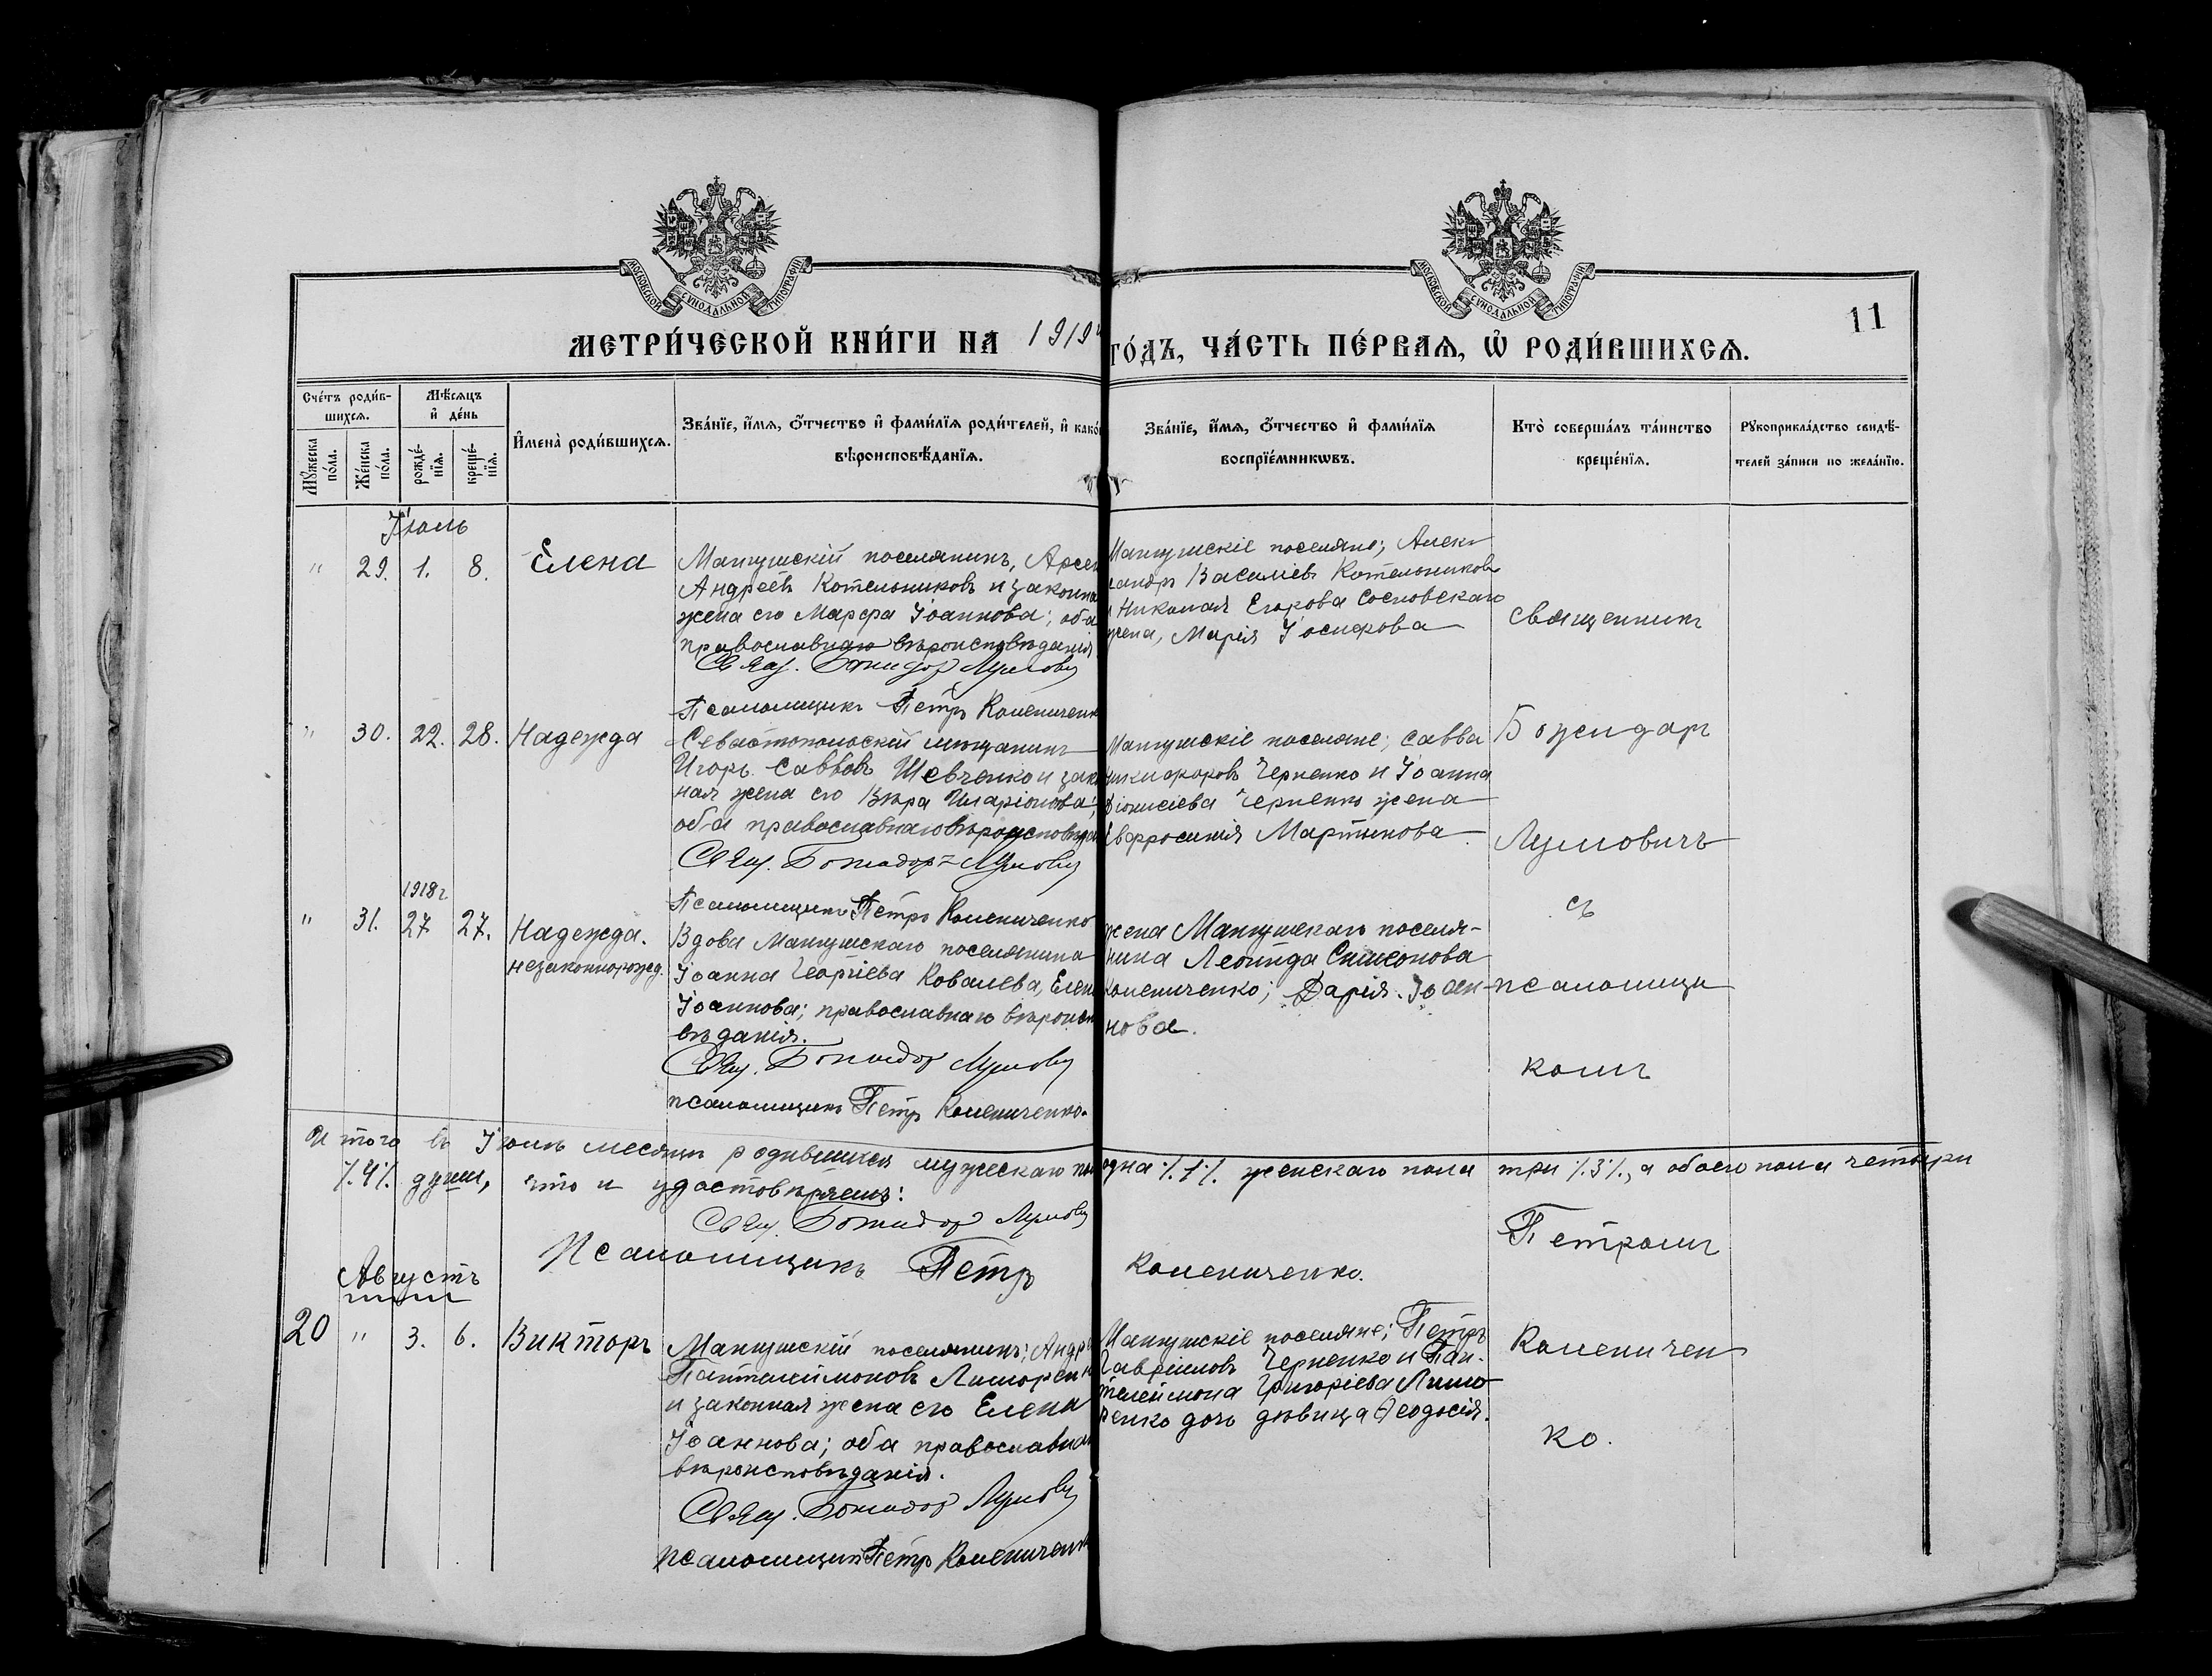 МОСКОВСКОЙ СѴНОДАЛЬНОЙ ТИПОГРАФІИ
МОСКОВСКОЙ СѴНОДАЛЬНОЙ ТИПОГРАФІИ
11
МЕТРИ́ЧЕСКОЙ КНИ́ГИ НА 1919 ГО́ДЪ, ЧА́СТЬ ПЕ́РВАѦ, Ѡ҆ РОДИ́ВШИХСѦ.
Сче́тъ роди́в-
шихсѧ.
Мѣ́сѧцъ
и҆ де́нь
Мꙋ́жеска
по́ла.
Же́нска
по́ла.
рожде́-
нїѧ.
креще́-
нїѧ.
И҆мена̀ роди́вшихсѧ.
Зва́нїе, и҆́мѧ, ѻ҆́тчество и҆ фами́лїѧ роди́телей, и҆ како́
вѣроисповѣ́данїѧ.
Зва́нїе, и҆́мѧ, ѻ҆́тчество и҆ фами́лїѧ
воспрїе́мникѡвъ.
Кто̀ соверша́лъ та́инство
креще́нїѧ.
Рꙋкоприкла́дство свидѣ́-
телей за́писи по жела́нїю.
Іюль
" 29. 1. 8. Елена
Мангушскій поселянинъ, Арсен
Андреевъ Котельниковъ и законна
жена его Марфа Іоаннова; оба
православнаго вѣроисповѣданія
Свящ. Божидар Лумович
Псаломщикъ Петръ Колениченк
Мангушскіе поселяне; Алек
сандръ Василіевъ Котельников
и Николая Егорова Сосновскаго
жена, Марія Іосифова
священник
" 30. 22. 28. Надежда
Севастопольскій мѣщанинъ
Игорь Саввовъ Шевченко и зак
ная жена его Вѣра Иларіонова;
оба православнаго вѣроисповѣдан
Свящ. Божидар Лумович
Псаломщикъ Петръ Колениченко
Мангушскіе поселяне; Савва
Никифоровъ Черненко и Іоанна
Діонисіева Черненко жена
Евфросинія Мартинова
Божидаръ
Лумовичъ
1918 г
" 31. 27 27. Надежда.
незаконнорожд.
Вдова Мангушскаго поселянина
Іоанна Георгіева Ковалева, Елен
Іоаннова; православнаго вѣроисп
вѣданія.
Свящ. Божидар Лумович
псаломщикъ Петръ Колениченко.
жена Мангушскаго поселя-
нина Леонида Симеонова
Колениченко; Дарія Іоан-
нова.
съ
псаломщи
комъ
Итого въ Іюлѣ месяцѣ родившихся мужескаго по одна ٪1٪ женскаго пола три ٪3٪, а обоего пола четыри
٪4٪ души, что и удостовѣряемъ:
Свящ. Божидар Лумович
Псаломщикъ Петръ Колениченко.
Петромъ
Августъ
20 " 3. 6. Викторъ
Мангушскій поселянинъ; Андре
Пантелеимоновъ Лиморенк
и законная жена его Елена
Іоаннова; оба православна
вѣроисповѣданія.
Свящ. Божидар Лумович
псаломщикъ Петръ Коленичен
Мангушскіе поселяне; Петръ
Гавриловъ Черненко и Пан-
телеимона Григоріева Лимо
ренко дочь дѣвица Ѳеодосія.
Коленичен
ко.